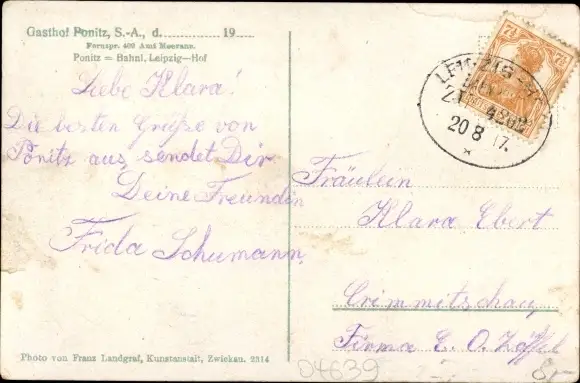 Gasthof Ponitz, S.-A., d. 19
Fernspr. 409 Amt Meerane.
Ponitz = Bahnl. Leipzig—Hof
Liebe Klara!
Die besten Grüße von
Ponitz aus, sendet Dir
Deine Freundin
Frida Schumann.
Photo von Franz Landgraf, Kunstanstalt, Zwickau. 2314
7½ 7½
LEIPZIG
20 8 17.
Fräulein
Klara Ebert
Crimmitschau
Firma E. O. Zöffel
04639